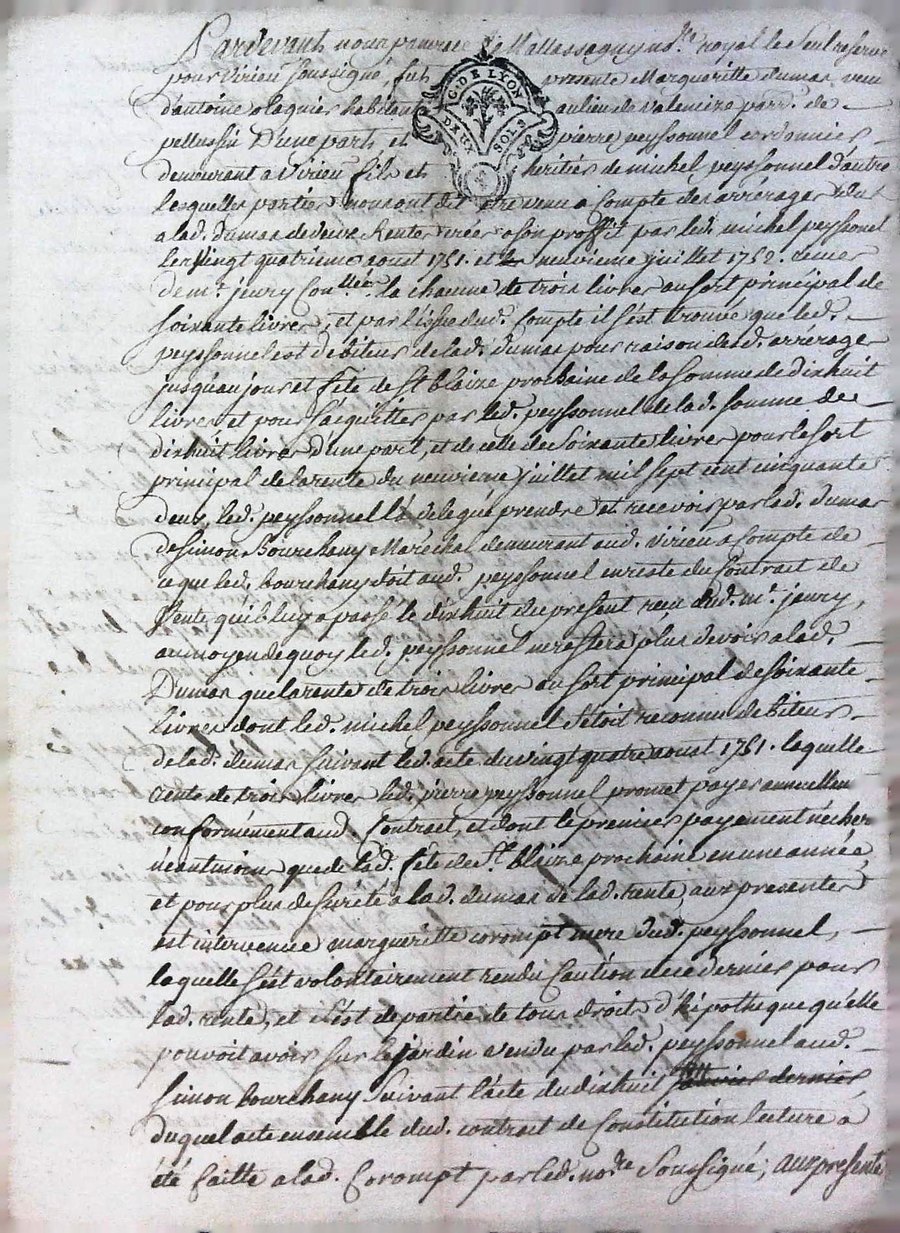 Pardevant nous pancrace de Mallassagny no.re royal le seul reservé
pour Virieu soussigné, fut presente Margueritte dumas veuve
d'antoine olagnier habitante au lieu de valencize parr.e de
pellussin D'une part et pierre peyssonnel cordonnier
demeurant a Virieu fils et heritier de michel peyssonnel d'autre
Lesquelles parties nous ont dit etre venu a compte des arrérages dus
a lad. dumas de deux Rentes créés a son proffit par led. michel peyssonel
Les Vingt quatrieme aoust 1751. et neuvieme juillet 1752. recues
de m.e jeury la chacune de trois livres au sort principal de
soixante livres, et par l'issue dud. Compte il s'est trouvé que led.
peyssonnel est debiteur de lad. dumas pour raison desd. arrérages
jusqu'au jour et fete de st blaize prochaine de la somme de dixhuit
livres et pour s'acquitter par led. peyssonnel de lad. somme de
dixhuit livres d'une part, et de celle de soixante livres pour le sort
principal de la rente du neuvieme juillet mil sept cent cinquante
deux, led. peyssonnel l'a delegué prendre et recevoir par lad. dumas
de Simon Bourchany Maréchal demeurant aud. Virieu a compte de
ce que led. bourchany doit aud. peyssonnel en reste du Contrait de
Vente qu'il luy a passé le dixhuit du present recu dud. m.e jeury,
au moyen de quoy led. peyssonnel ne restera plus devoir a lad.
Dumas que la rente de trois livres au sort principal de soixante
livres dont led. michel peyssonnel s'étoit reconnu debiteur
de lad. dumas suivant led. acte du vingt quatre aoust 1751. laquelle
rente de trois livres led. pierre peyssonnel promet payer annuellem
conformément aud. Contract, et dont le premier payement n'echer
néantmoins que de lad. fete de St. blaize prochaine en une année,
et pour plus de sureté a lad. dumas de lad. rente, aux presentes
est intervenüe margueritte corompt mere dud. peyssonnel,
laquelle s'est volontairement rendu Caution de ce dernier pour
lad. rente, et s'est departie de tous droits d'hipotheque qu'elle
pouvoit avoir sur le jardin vendu par led. peyssonnel aud.
Simon bourchany Suivant l'acte du dixhuit fevrier dernier
duquel acte ensemble dud. contrat de Constitution lecture a
été faitte a lad. Corompt par led. no.re Soussigné; aux presente
C. DE LYON
DEUX SOLS